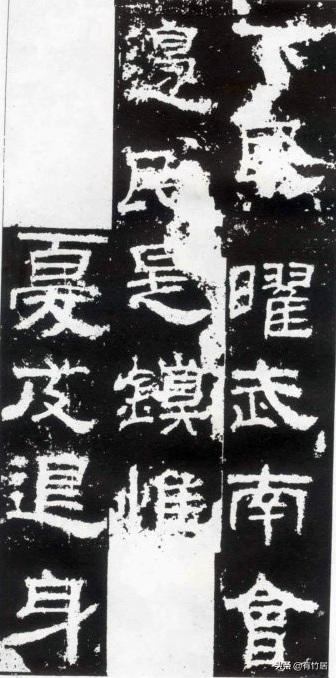 下民曜武南會
邊民是鎮惟
憂芨退身
头条 @有竹居